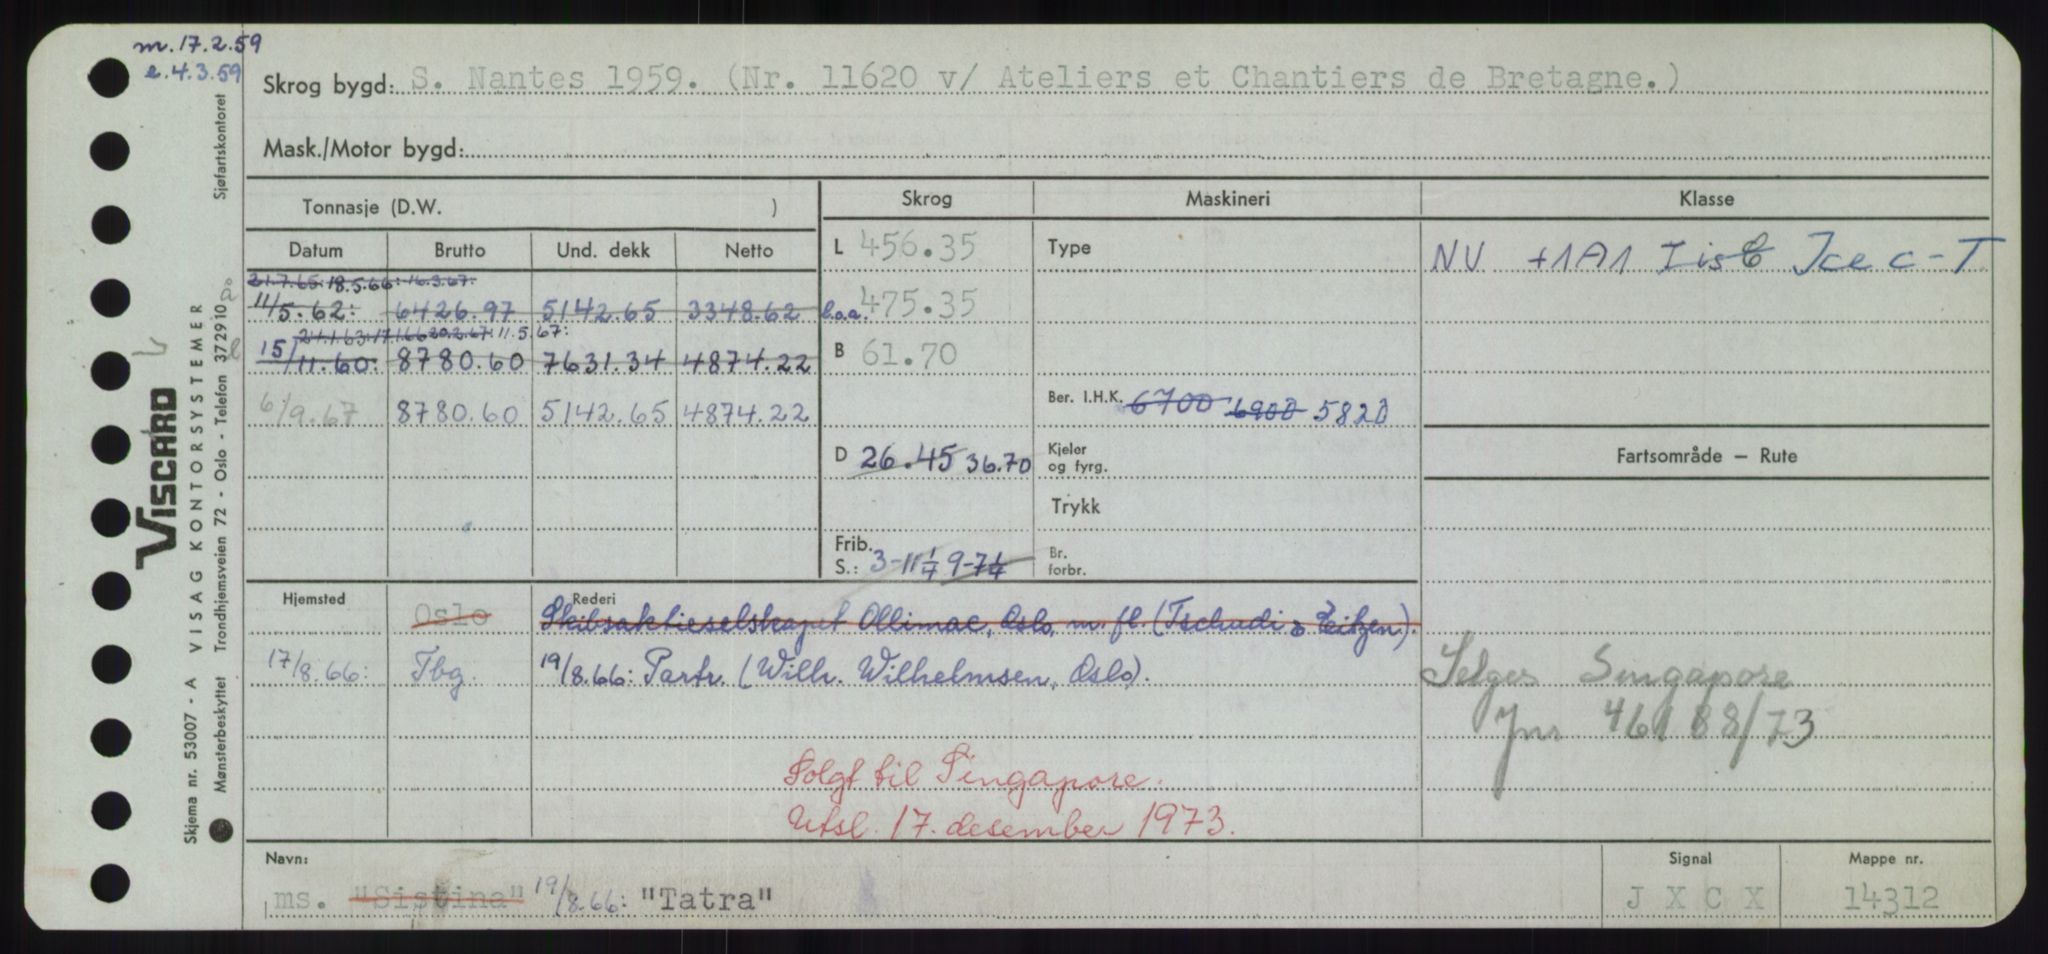 m. 17.2.59
e. 4.3.59
Skrog bygd: S. Nantes 1959. (Nr. 11620 v/ Ateliers et Chantiers de Bretagne.)
Mask./Motor bygd:
Tonnasje (D.W. )
Skrog
Maskineri
Klasse
Datum Brutto Und. dekk Netto
L 456.35
Type
NV +1A1 Is C Ice c - T
21.7.65: 18.5.66: 16.3.67:
11/5.62: 6426.97 5142.65 3348.62
l.o.a. 475.35
24.1.63: 17.1.66 20.2.67: 11.5.67:
15/11.60: 8780.60 7631.34 4874.22
B 61.70
6/9.67 8780.60 5142.65 4874.22
Ber. I.H.K. 6700 6900 5820
D 26.45 36.70
Kjeler
og fyrg.
Fartsområde — Rute
Trykk
Frib.
S.: 3-11 1/4 9-7 1/4
Br.
forbr.
Hjemsted Oslo
Rederi
Skibsaktieselskapet Ollimac, Oslo, m. fl. (Tschudi & Eitzen).
17/8.66: Tbg
19/8.66: Partr. (Wilh. Wilhelmsen, Oslo).
Selges Singapore
Jnr 46188/73
Solgt til Singapore.
Utsl. 17. desember 1973.
Navn:
ms. "Sistina" 19/8.66: "Tatra"
Signal
J X C X
Mappe nr.
14312
VISCARD
Skjema nr. 53007 - A VISAG KONTORSYSTEMER
Mønsterbeskyttet Trondhjemsveien 72 - Oslo - Telefon 372910 Sjøfartskontoret